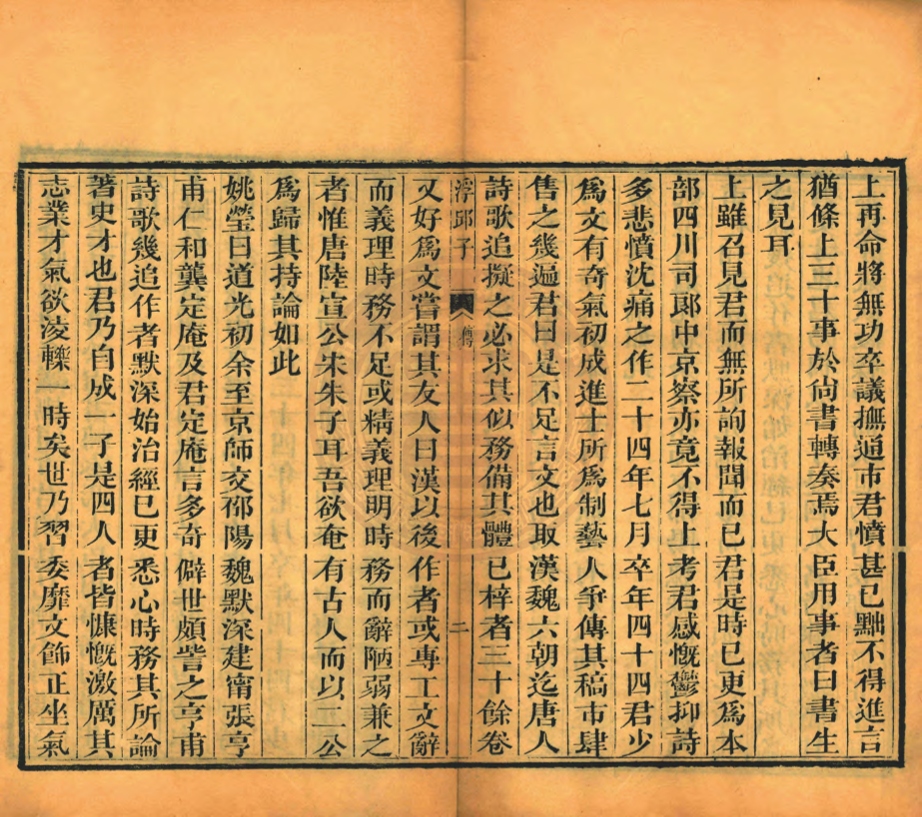 上再命將無功卒議撫通市君憤甚已黜不得進言
猶條上三十事於尙書轉奏焉大臣用事者曰書生
之見耳
上雖召見君而無所詢報聞而已君是時已更爲本
部四川司郞中京察亦竟不得上考君感慨鬱抑詩
多悲憤沈痛之作二十四年七月卒年四十四君少
爲文有奇氣初成進士所爲制藝人爭傳其稿市肆
售之幾遍君曰是不足言文也取漢魏六朝迄唐人
詩歌追擬之必求其似務備其體已梓者三十餘卷
浮邱子 傳 二
又好爲文嘗謂其友人曰漢以後作者或專工文辭
而義理時務不足或精義理明時務而辭陋弱兼之
者惟唐陸宣公宋朱子耳吾欲奄有古人而以二公
爲歸其持論如此
姚瑩曰道光初余至京師交邵陽魏默深建甯張亨
甫仁和龔定庵及君定庵言多奇僻世頗訾之亨甫
詩歌幾追作者默深始治經已更悉心時務其所論
著史才也君乃自成一子是四人者皆慷慨激厲其
志業才氣欲凌轢一時矣世乃習委靡文飾正坐氣